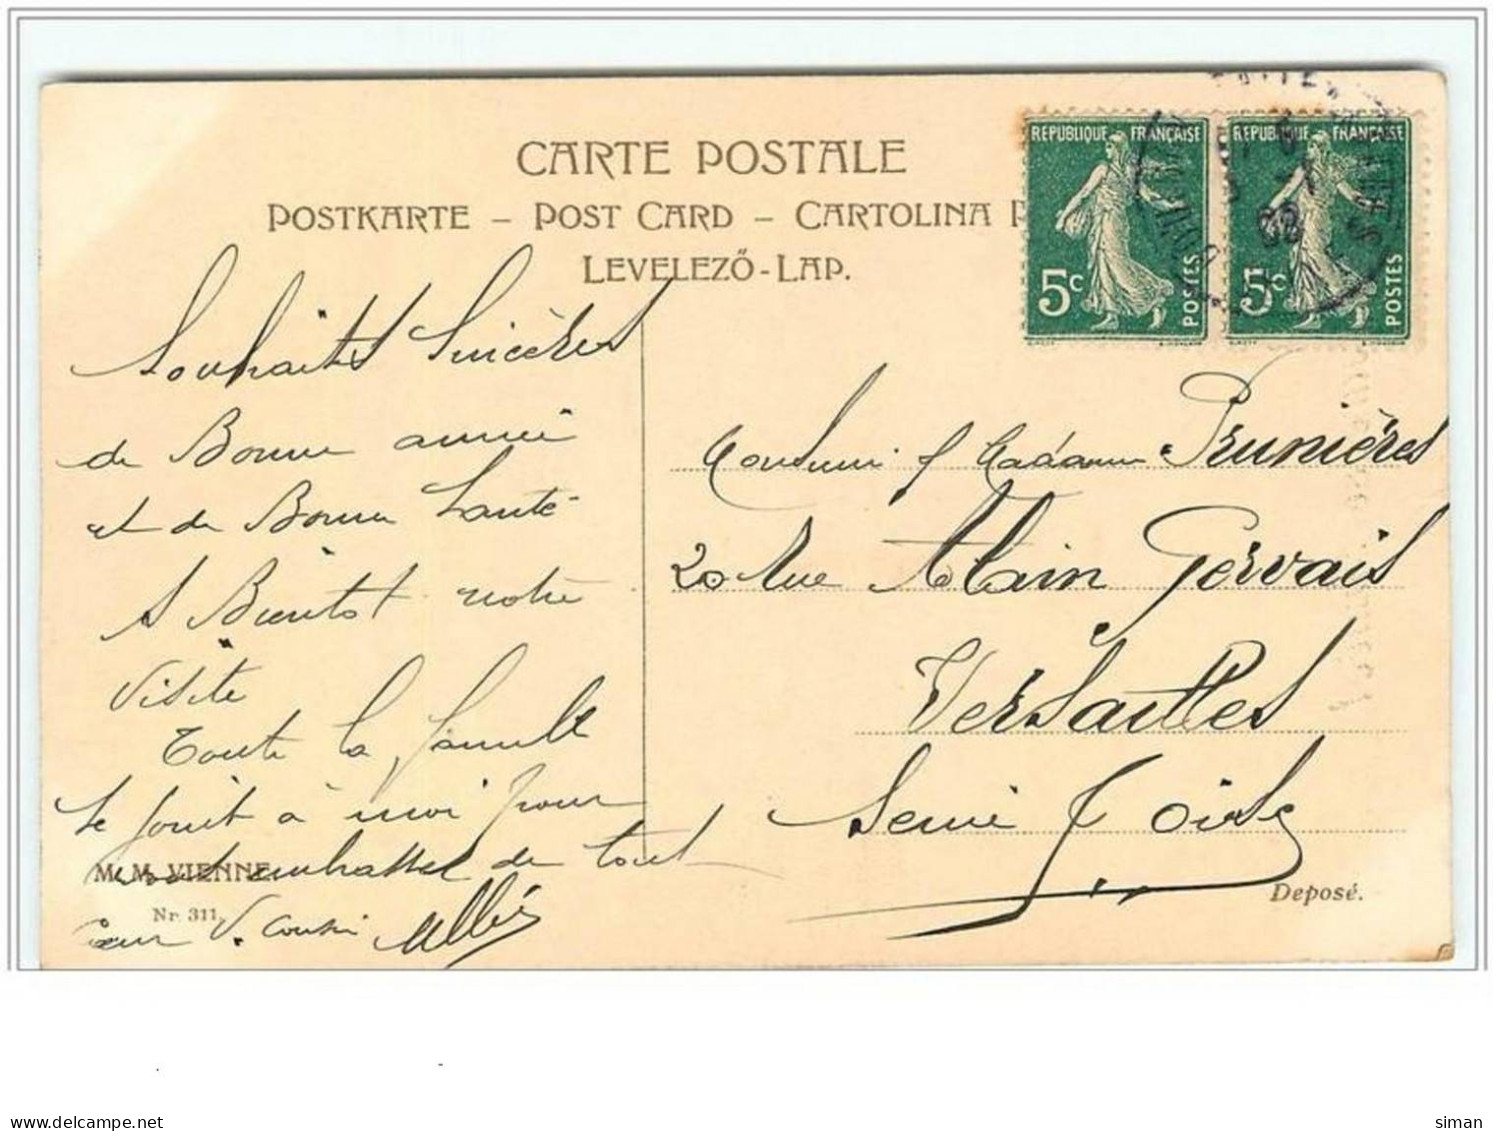 CARTE POSTALE
POSTKARTE – POST CARD – CARTOLINA P
LEVELEZŐ-LAP.
REPUBLIQUE FRANÇAISE
5c
POSTES
REPUBLIQUE FRANÇAISE
5c
POSTES
Souhaits Sincères
de Bonne année
et de Bonne Santé
A Bientot notre
Visite
Toute la famille
se joint à moi pour
embrasser de tout
Coeur V. Cousin Albér
Monsieur & Madame Prunières
20 Rue Alain Gervais
Versailles
Seine & Oise
M. M. VIENNE
Nr. 311.
Deposé.
siman
www.delcampe.net